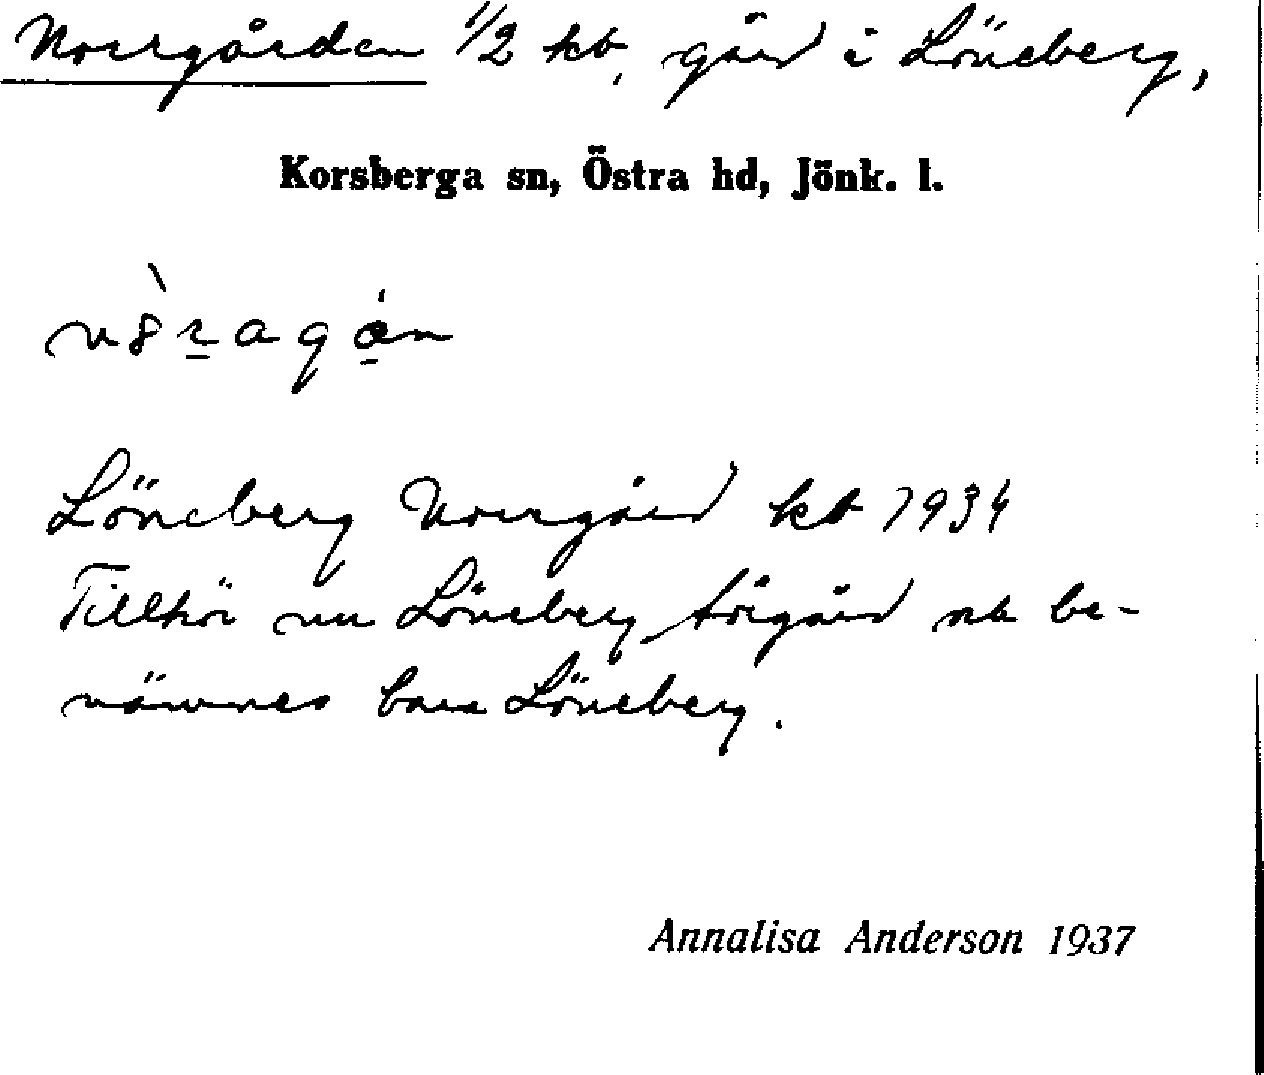 Norrgården 1/2 kt, gård i Löneberg,
Korsberga sn, Östra hd, Jönk. l.
Löneberg Norrgård kt 1934
Tillhör nu Löneberg Törgård och be-
nämnes bara Löneberg.
Annalisa Anderson 1937